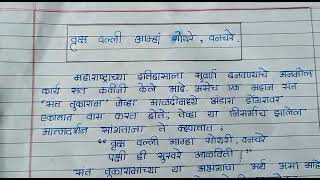 वृक्ष वल्ली आम्हां सोयरे, वनचरे.
महाराष्ट्राच्या इतिहासाला सुवर्ण बनवण्याचे अनमोल
कार्य संत कवींनी केले आहे. असेच एक महान संत
"संत तुकाराम" जेव्हा आळंदीमध्ये भंडारा डोंगरावर
एकांतात वास करत होते, तेव्हा या निसर्गाचे झालेल
आत्मदर्शन सांगताना ते म्हणतात :
"वृक्ष वल्ली आम्हा सोयरी, वनचरे
पक्षी ही सुस्वरे आळविती।"
संत तुकारामांच्या या अभंगाचा अर्थ असा आहे